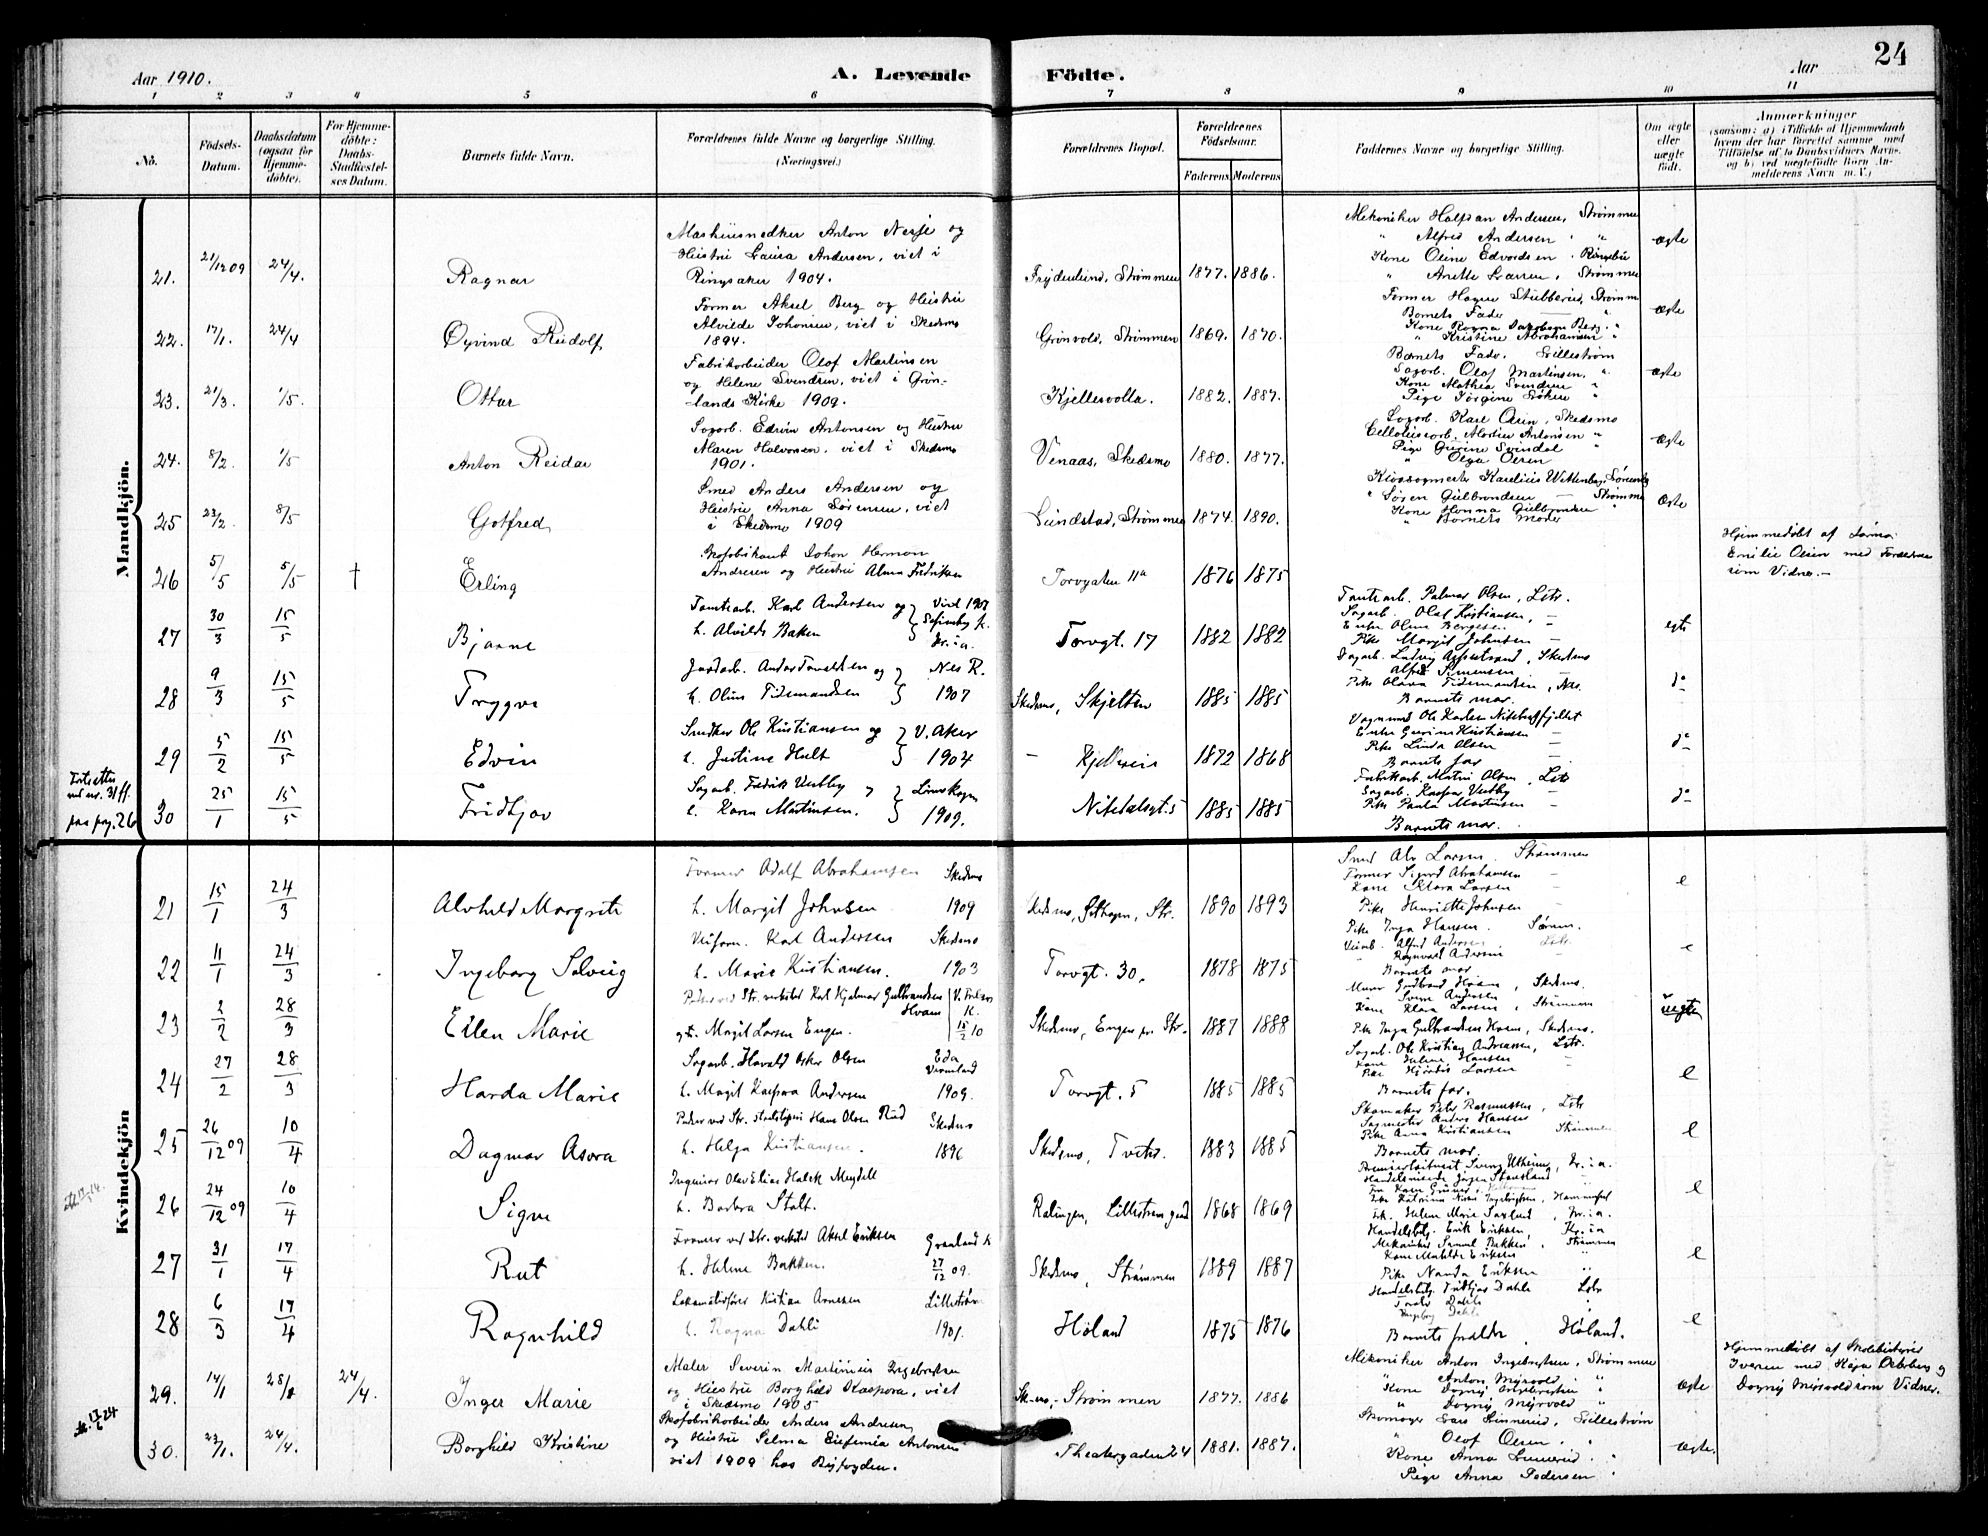 24
Aar 1910.
A. Levende
Födte.
Aar
1 2 3 4 5 6 7 8 9 10 11
No.
Födsels-Datum.
Daabsdatum (ogsaa for Hjemme-döbte).
For Hjemme-döbte: Daabs-Stadfæstel-ses Datum.
Barnets fulde Navn.
Forældrenes fulde Navne og borgerlige Stilling.
(Næringsvei.)
Forældrenes Bopæl.
Forældrenes Födselsaar.
Faderens Moderens
Faddernes Navne og borgerlige Stilling.
Om ægte eller uægte födt.
Anmærkninger
(saasom: a) i Tilfælde af Hjemmedaab
hvem der har forrettet samme med
Tilföielse af to Daabsvidners Navne,
og b) ved uægtefödte Börn An-
melderens Navn m. V.)
Mandkjön.
21. 21/12 09 24/4. Ragnar
Anton Nesje og
Hustru Laura Andersen, viet i
Ringsaker 1904.
Frydenlund, Strømmen 1877. 1886.
Mekaniker Halfdan Andersen, Strømmen
" Alfred Andersen " "
Kone Oline Edvardsen, Ringebu
" Anette Larsen, Strømmen
ægte
22. 17/1. 24/4 Øyvind Rudolf
Former Aksel Berg og Hustru
Alvilde Johansen, viet i Skedsmo
1894.
Grønvold, Strømmen 1869. 1870.
Former Hagen Stubberud, Strømm
Barnets Fader "
Kone Ragna Jacobsen Berg. "
" Kristine Abrahamsen "
ægte
23. 21/3. 1/5. Ottar
Fabrikarbeider Olaf Martinsen
og Helene Svendsen, viet i Grøn-
lands Kirke 1909.
Kjellervolla. 1882. 1887.
Barnets Fader. Lillestrøm
Sagarb. Olaf Martinsen, "
Kone Mathea Svendsen "
Pige Jørgine "
ægte
24. 8/2. 1/5 Anton Reidar
Sagarb. Edvin Antonsen og Hustru
Maren Halvorsen, viet i Skedsmo
1901.
Venaas, Skedsmo 1880. 1877.
Sagarb. Karl Olsen, Skedsmo
Cellulosearb. Martin Antonsen "
Pige Gurine Svindal "
" Olga Olsen
ægte
25 23/2. 8/5 Gotfred
Smed Anders Andersen og
Hustru Anna Sørensen, viet
i Skedsmo 1909
Lundstad, Strømmen 1874. 1890.
Søren Gulbrandsen — Strømmen
Kone Hanna Gulbrandsen "
" Barnets Moder
ægte
26 5/5 5/5 † Erling
Skofabrikant Johan Herman
Andresen og Hustru Alma Fredriksen
Torvgaten 11a 1876 1875
Hjemmedøbt af
Emilie Olsen med Forældrene
som Vidner.—
27 30/3 15/5 Bjarne
Tomtearb. Karl Andersen og Viet 1907
h. Alvilde Bakken Kr.ia.
Torvgt. 17 1882 1882
Tomtearb. Palmar Olsen, Lstr.
Sagarb. Olaf Kristiansen, —
Enke Olava Bergesen
Pike Margit Johnsen —
egte
28 9/3 15/5 Trygve
og Nes R.
h. Oline Tidemandsen 1907
Skedsmo, Skjetten 1885 1885
Dagarb. Ludvig, Skedsmo
Alfred Simensen
Pike Olava Tidemandsen, Nes.
Barnets mor.
do
29 5/2 15/5 Edvin
Snedker Ole Kristiansen og V. Aker
h. Justine Hult 1904
— Kjelleren 1872 1868
Vognmand Ole Karlsen
Enke Gurine Kristiansen —
Pike Linda Olsen —
Barnets far —
do
Fortsættes
ved nr. 31 ff.
paa pag. 26
30 25/1 15/5 Fridtjov
Sagarb. Fredrik Vestby og Lørenskogen
h. Karen Martinsen 1909.
Nitedalsgt. 5 1885 1885
Fabrikarb. Martin Olsen, Lstr
Sagarb. Kaspar Vestby —
Pike Paula Martinsen —
Barnets mor.
do
Kvindekjön
21 15/1 24/3 Alvhild Margrete
Former Adolf Abrahamsen Skedsmo
h. Margit Johnsen 1909
Skedsmo, Str. 1890 1893
Smed Alv Larsen Strømmen
Former Sigurd Abrahamsen —
Kone Klara Larsen —
Pike Henriette Johnsen —
e
22 11/1 24/3 Ingeborg Solveig
Karl Andersen Skedsmo
h. Marie Kristiansen. 1903
Torvgt. 30. 1878 1875
Pike Inga Hansen. Sørum.
Alfred Andersen Lstr.
Ragnvald Andersen
Barnets mor
e
23 2/2 28/3 Ellen Marie
Pudser ved Str. verksted Karl Hjalmar Gulbrandsen Hvam
og h. Margit Larsen Engen. 15/2 10
Skedsmo, Engen pr Str. 1887 1888
Murer Gudbrand Hvam, Skedsmo.
Svend Andersen
Kone Klara Larsen, Strømmen
Pike Inga Gulbrandsen Hvam, Skedsmo.
uegte
24 27/2 28/3 Harda Marie
Sagarb. Harald Oskar Olsen Eda Vermland
h. Margit Kaspara Andersen 1909.
Torvgt. 5 1885 1885
Sagarb. Ole Kristian Andreassen, Lstr.
Kone Helene Hansen —
Pike Hjørdis Larsen —
Barnets far.
e
25 26/12 09 10/4 Dagmar Asora
Pudser ved Str. Hans Olsen Rud Skedsmo
h. Helga Kristiansen. 1896
Skedsmo, Tveter. 1883 1885
Skomaker Peter Rasmussen, Lstr
Sagmester Anders Hansen
Pike Anna Kristiansen Strømmen
Barnets mor.
e
26 24/12 09 10/4 Signe
Ingeniør Olav Elias Holck Meydell
h. Barbra Stolt.
Rælingen, Lillestrøm gaard 1868 1869
Premierløitnant Svend Utheim, Kr.ia.
Hammerfest
Frk. Helene Marie, Kr.ia.
e
27 31/1 17/4 Rut
Former ved Str. verksted Aksel Eriksen Grønland K
h. Helene Bakken. 27/12 09.
Skedsmo, Strømmen 1889 1887
Handelsbetj. Erik Eriksen Kr.ia
Mekaniker Samuel Bakken, Strømmen
Kone Matilde Eriksen "
Pike Nanda Eriksen "
e
28 6/3 17/4 Ragnhild
Lokomotivfører Kristian Arnesen Lillestrøm
h. Ragna Dahli 1901.
Høland 1875 1876
Handelsbetj. Fridtjof Dahli Lstr
Dahli "
Ingeborg Dahli
Barnets forældre, Høland.
e
29. 14/1 28/1 24/4. Inger Marie
Maler Severin Martinius Ingebretsen
og Hustru Borghild Kaspara, viet
i Skedsmo 1905
Sk-mo,- Strømmen 1877. 1886
Mekaniker Anton Ingebretsen, Strømmen
" Anton Myrvold, "
Kone Dagny Ingebretsen "
" Dagny Myrvold "
ægte
Hjemmedøbt af Skolebestyrer
Iversen med Kaja Osterberg og
Dagny Myrvold som Vidner.
30. 23/1. 24/4. Borghild Kristine
Skofabrikarbeider Anders Andresen
og Hustru Selma Eufemia Antonsen
viet 1909 hos Byfogden.
Theatergaden 24 1881. 1887.
Skomager Lars Linnerud, Lillestrøm
" Olaf Olsen, "
Kone Anna Linnerud, "
Pige Anna Pedersen "
ægte.